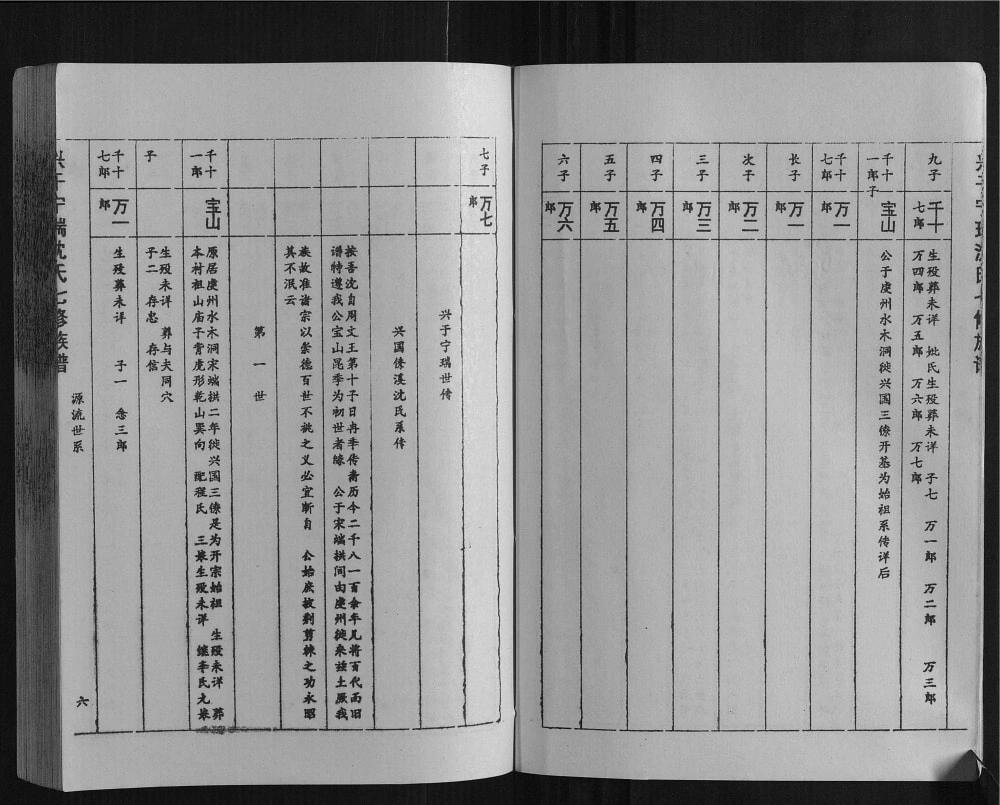 兴于宁瑞沈氏七修族谱
九子
千十七郎
生殁葬未详 妣氏生殁葬未详 子七 万一郎 万二郎 万三郎
万四郎 万五郎 万六郎 万七郎
千十一郎子
宝山
公于虔州水木洞徙兴国三僚开基为始祖系传详后
千十七郎
万一
长子
万一郎
次子
万二郎
三子
万三郎
四子
万四郎
五子
万五郎
六子
万六郎
七子
万七郎
兴于宁瑞世传
兴国僚溪沈氏系传
按吾沈自周文王第十子曰冉季传裔历今二千八一百余年凡将百代而旧
谱特遵我公宝山昆季为初世者缘 公于宋端拱间由虔州徙来兹土厥我
族故准诸宗以崇德百世不祧之义必宜断自 公始庶披荆剪棘之功永昭
其不泯云
第一世
千十一郎
宝山
原居虔州水木洞宋端拱二年徙兴国三僚是为开宗始祖 生殁未详 葬
本村祖山庙子背虎形乾山巽向 配程氏 三娘生殁未详 继李氏九娘
子
生殁未详 葬与夫同穴
子二 存忠 存信
千十七郎
万一郎
生殁葬未详 子一 念三郎
兴于宁瑞沈氏七修族谱
源流世系
六